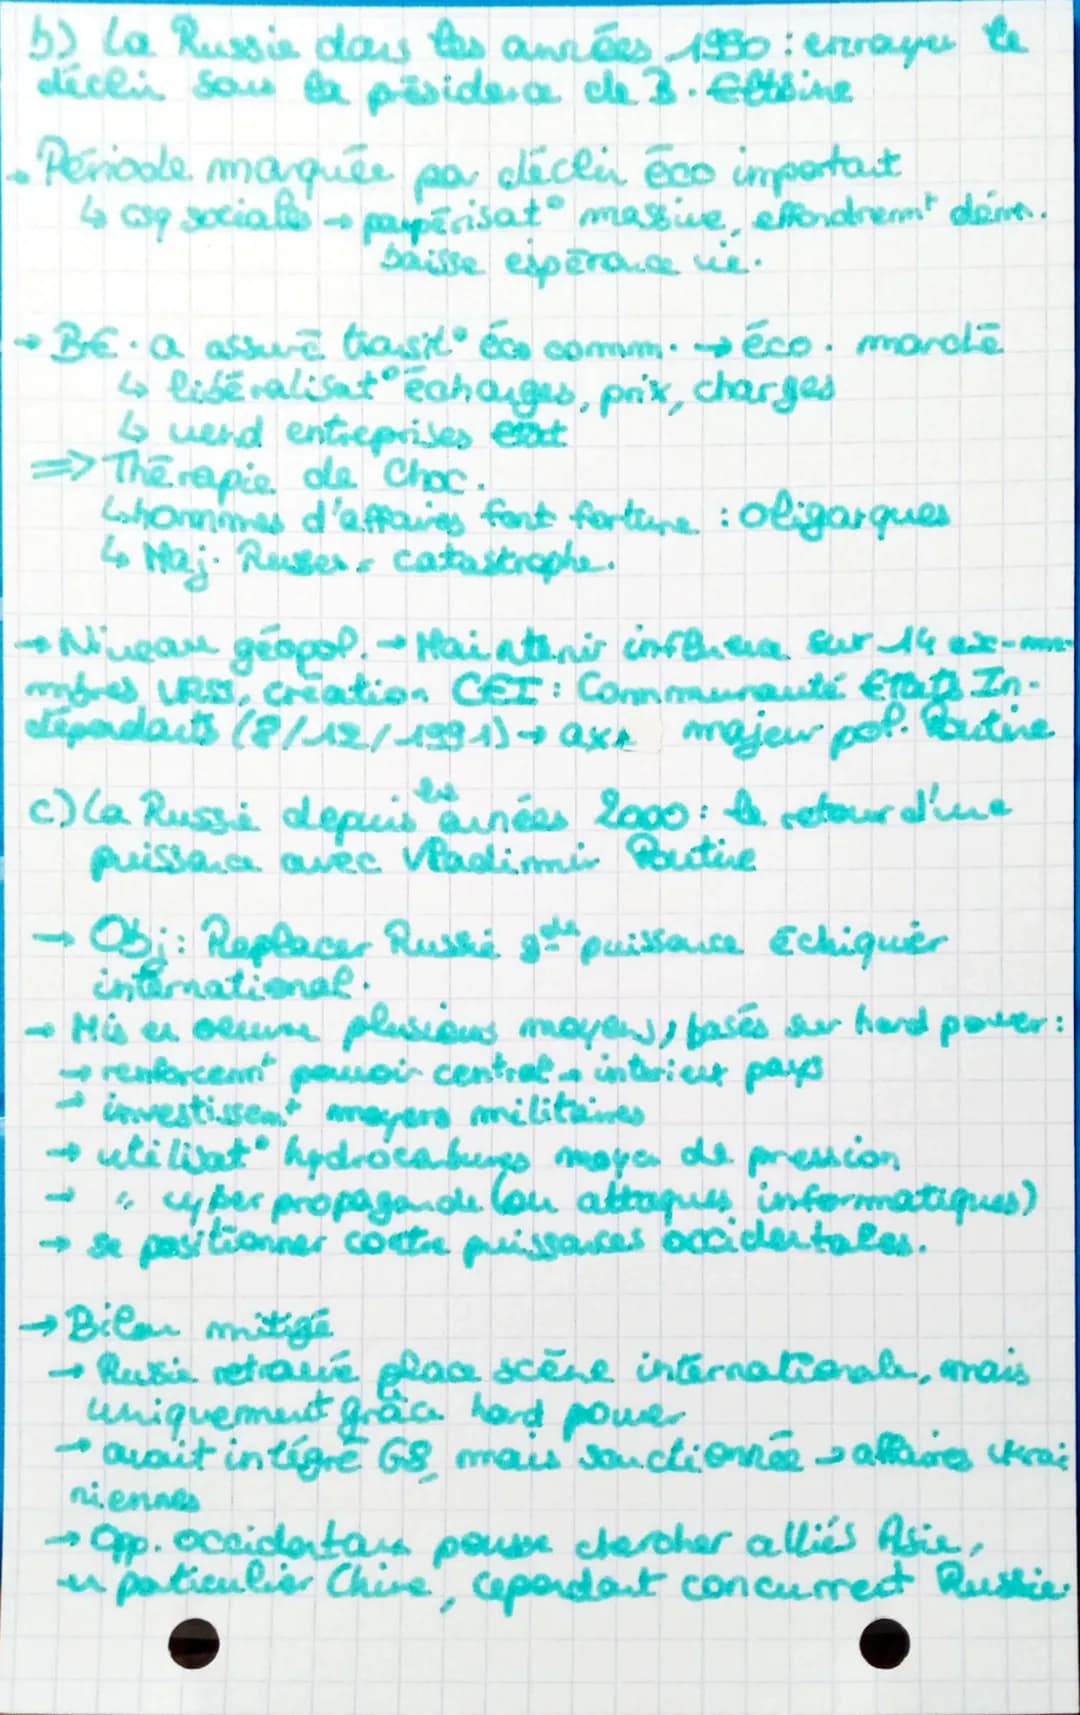 b) La Russie dans les années 1990 : enrayer le
déclin sous la présidence de B. Eltsine
→ Période marquée par déclin éco important
↳ csq sociales → paupérisat° massive, effondremt dém.
baisse espérance vie.
→ BE. a assuré transit° éco comm. → éco. marché
↳ libéralisat° échanges, prix, charges
↳ vend entreprises état
⇒ Thérapie de Choc.
↳ hommes d'affaires font fortune : oligarques
↳ Maj. Russes = catastrophe.
→ Niveau géopol. → Maintenir influence sur 14 ex-me-
mbres URSS, création CEI : Communauté Etats In-
dépendants (8/12/1991) → axe majeur pol. Poutine
c) La Russie depuis les années 2000 : le retour d'une
puissance avec Vladimir Poutine
→ Obj : Replacer Russie gde puissance échiquier
international.
→ Mis en oeuvre plusieurs moyens, basés sur hard power :
→ renforcemt pouvoir central → intérieur pays
→ investissemt moyens militaires
→ utilisat° hydrocarbures moyen de pression
→ " cyber propagande (ou attaques informatiques)
→ se positionner contre puissances occidentales.
→ Bilan mitigé
→ Russie retrouvé place scène internationale, mais
uniquement grâce hard power
→ avait intégré G8, mais sanctionnée → affaires ukrai
niennes
→ Opp. occidentaux pousse chercher alliés Asie,
en particulier Chine, cependant concurrect Russie